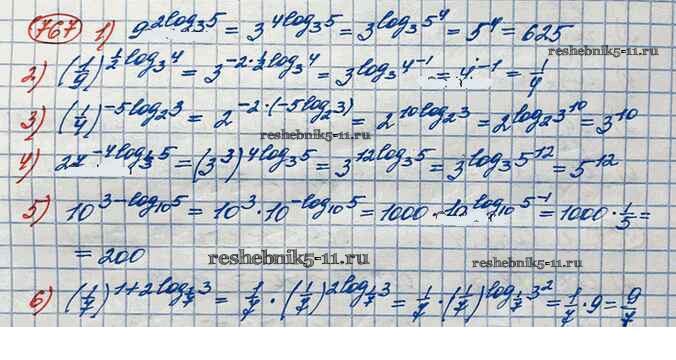 767 1) 9^(2log₃5) = 3^(4log₃5) = 3^(log₃5⁴) = 5⁴ = 625
reshebnik5-11.ru
2) (1/9)^(½log₃4) = 3^(-2·½log₃4) = 3^(log₃4⁻¹) = 4⁻¹ = 1/4
3) (1/4)^(-5log₂3) = 2^(-2·(-5log₂3)) = 2^(10log₂3) = 2^(log₂3¹⁰) = 3¹⁰
reshebnik5-11.ru
4) 27^(-4log_(1/3)5) = (3³)^(4log₃5) = 3^(12log₃5) = 3^(log₃5¹²) = 5¹²
5) 10^(3-log₁₀5) = 10³·10^(-log₁₀5) = 1000·10^(log₁₀5⁻¹) = 1000·1/5 =
= 200
reshebnik5-11.ru reshebnik5-11.ru
6) (1/7)^(1+2log_(1/7)3) = 1/7·(1/7)^(2log_(1/7)3) = 1/7·(1/7)^(log_(1/7)3²) = 1/7·9 = 9/7